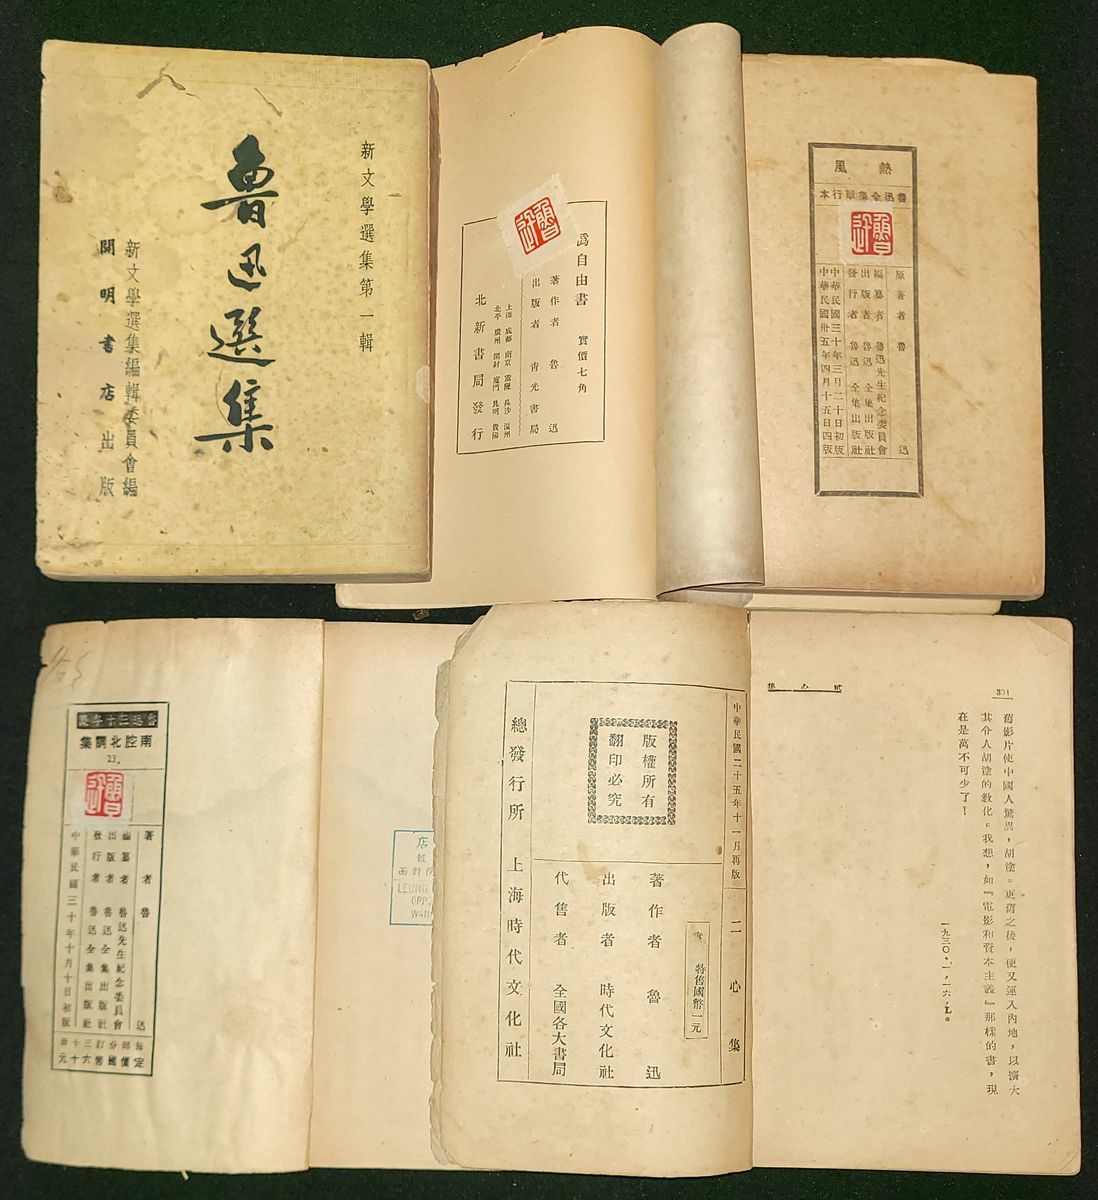 新文學選集第一輯
魯迅選集
新文學選集編輯委員會編
開明書店出版
爲自由書
實價七角
著作者 魯迅
出版者 靑光書局
上海 成都 南京 重慶 長沙 溫州
北平 廣州 開封 廈門 昆明 貴陽
北新書局發行
熱風
魯迅全集單行本
魯迅
原著者 魯迅
編纂者 魯迅先生紀念委員會
出版者 魯迅全集出版社
發行者 魯迅全集出版社
中華民國三十年三月二十日初版
中華民國卅五年四月十五日四版
魯迅三十年集
南腔北調集
23
魯迅
著者 魯迅
編纂者 魯迅先生紀念委員會
出版者 魯迅全集出版社
發行者 魯迅全集出版社
中華民國三十年十月十日初版
店
面對
LEUNG
OPP.
WAN
中華民國二十五年十一月再版
二心集
特售國幣一元
版權所有
翻印必究
著作者 魯迅
出版者 時代文化社
代售者 全國各大書局
總發行所 上海時代文化社
二心集
301
舊影片使中國人驚異，胡塗。更舊之後，便又運入內地，以擴大
其令人胡塗的敎化。我想，如『電影和資本主義』那樣的書，現
在是萬不可少了！
一九三〇，一，一六，L。